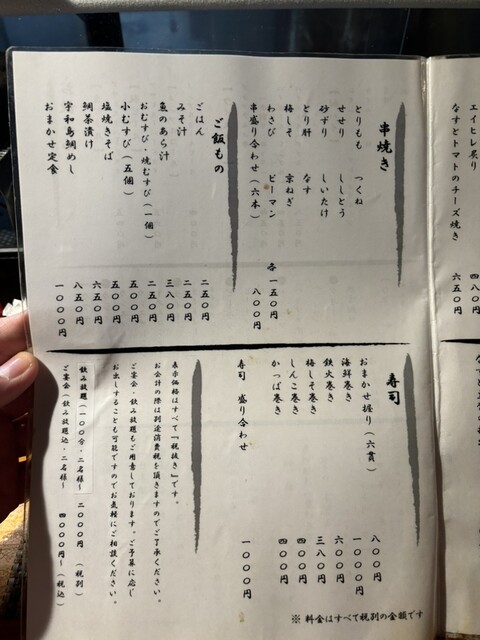 エイヒレ炙り 四八〇円
なすとトマトのチーズ焼き 六五〇円
串焼き
とりもも つくね
せせり ししとう
砂ずり しいたけ
とり肝 なす
梅しそ 京ねぎ
わさび ピーマン 各一五〇円
串盛り合わせ(六本) 八〇〇円
ご飯もの
ごはん 二五〇円
みそ汁 二五〇円
魚のあら汁 三八〇円
おむすび・焼むすび(一個) 二五〇円
小むすび(五個) 五〇〇円
塩焼きそば 五〇〇円
鯛茶漬け 六五〇円
宇和島鯛めし 八五〇円
おまかせ定食 一〇〇〇円
寿司
おまかせ握り(六貫) 八〇〇円
海鮮巻き 一〇〇〇円
鉄火巻き 六〇〇円
梅しそ巻き 三八〇円
しんこ巻き 四〇〇円
かっぱ巻き 四〇〇円
寿司 盛り合わせ 一〇〇〇円
表示価格はすべて『税抜き』です。
お会計の際は別途消費税を頂きますのでご了承ください。
ご宴会・飲み放題もご用意しております。ご予算に応じ
お出しすることも可能ですのでお気軽にご相談ください。
飲み放題(一〇〇分・二名様〜 二〇〇〇円(税別)
ご宴会(飲み放題込・二名様〜 四〇〇〇円〜(税込)
※ 料金はすべて税別の金額です